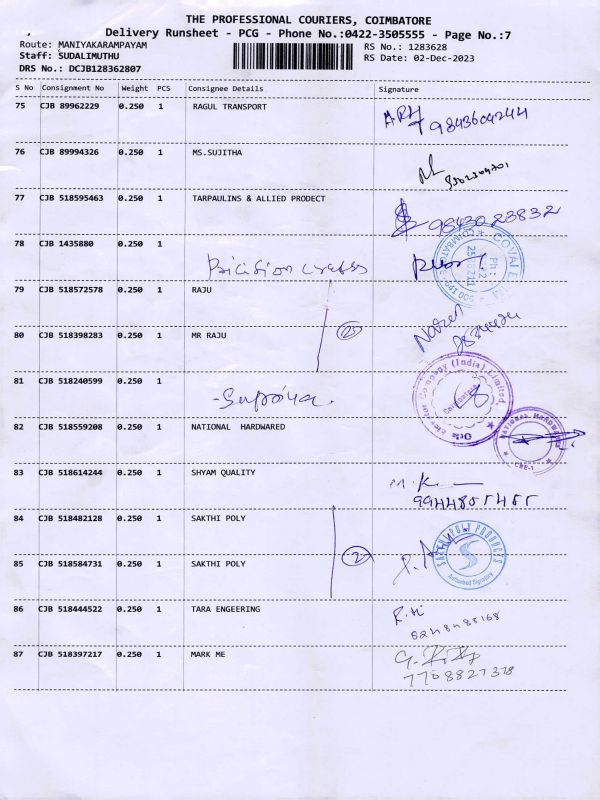 THE PROFESSIONAL COURIERS, COIMBATORE
Delivery Runsheet - PCG - Phone No.:0422-3505555 - Page No.:7
Route: MANIYAKARAMPAYAM RS No.: 1283628
Staff: SUDALIMUTHU RS Date: 02-Dec-2023
DRS No.: DCJB128362807
S No Consignment No Weight PCS Consignee Details Signature
75 CJB 89962229 0.250 1 RAGUL TRANSPORT
9843604244
76 CJB 89994326 0.250 1 MS.SUJITHA
77 CJB 518595463 0.250 1 TARPAULINS & ALLIED PRODECT
9843023832
78 CJB 1435880 0.250 1
79 CJB 518572578 0.250 1 RAJU
80 CJB 518398283 0.250 1 MR RAJU
81 CJB 518240599 0.250 1
Company (India) Limited
Coimbatore
82 CJB 518559208 0.250 1 NATIONAL HARDWARED
NATIONAL HARDWARE
CBE-1
83 CJB 518614244 0.250 1 SHYAM QUALITY
M.K
9944805455
84 CJB 518482128 0.250 1 SAKTHI POLY
2
SAKTHI POLY PRODUCTS
Authorised Signatory
85 CJB 518584731 0.250 1 SAKTHI POLY
86 CJB 518444522 0.250 1 TARA ENGEERING
87 CJB 518397217 0.250 1 MARK ME
7708827378